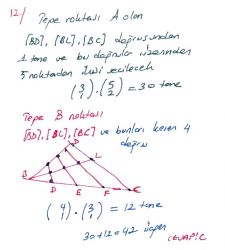 12/
Tepe noktası A olan
[BD], [BL], [BC] doğrusundan
1 tane ve bu doğrular üzerinden
5 noktadan ikisi seçilecek
(3 1) . (5 2) = 30 tane
Tepe B noktası
[BD], [BL], [BC] ve bunları kesen 4
doğru
D
L
B
D E F C
(4 1) . (3 1) = 12 tane
30+12=42 üçgen
CEVAP: C